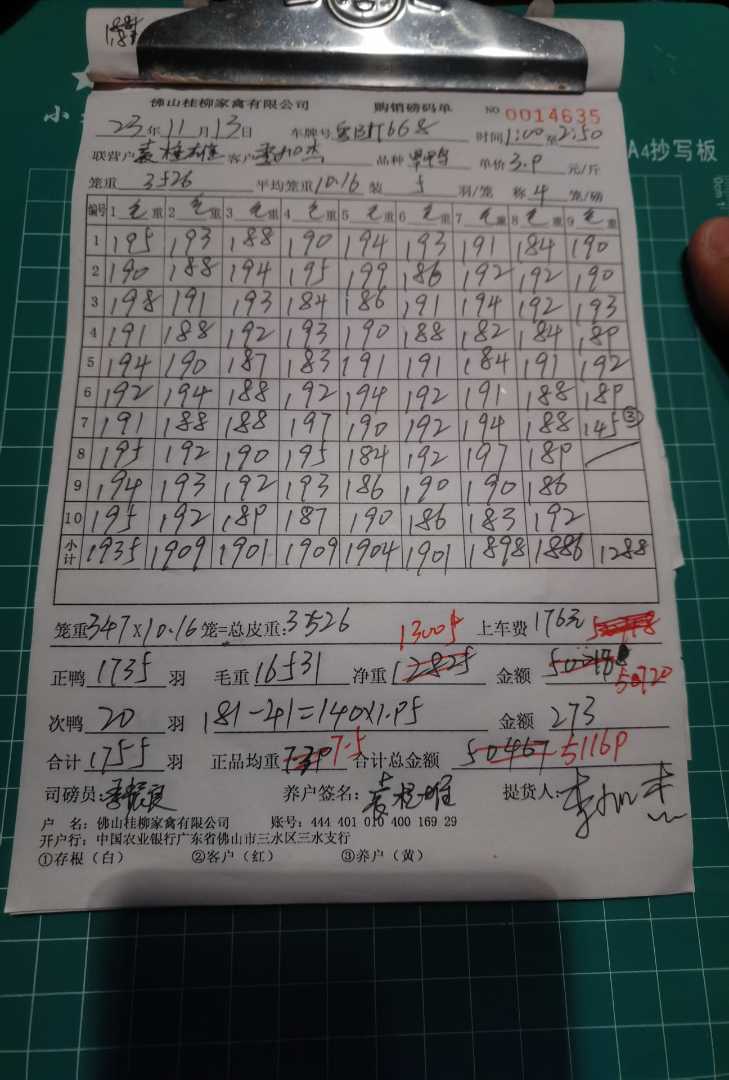 佛山桂柳家禽有限公司 购销磅码单 NO 0014635
23年11月13日 车牌号 668 时间1:00至2:50
A4抄写板
联营户 客户 品种 单价3.9元/斤
笼重3526 平均笼重10.16 装5羽/笼 称4笼/磅
编号 1毛重 2毛重 3毛重 4毛重 5毛重 6毛重 7毛重 8毛重 9毛重
1 195 193 188 190 194 193 191 184 190
2 190 188 194 195 199 186 192 192 190
3 198 191 193 184 186 191 194 192 193
4 191 188 192 193 190 188 182 184 189
5 194 190 187 183 191 191 184 191 192
6 192 194 188 192 194 192 191 188 189
7 191 188 188 197 190 192 194 188 145③
8 195 192 190 195 184 192 197 189
9 194 193 192 193 186 190 190 186
10 195 192 189 187 190 186 183 192
小计 1935 1909 1901 1909 1904 1901 1898 1886 1288
笼重347X10.16笼=总皮重:3526 13005 上车费176元
正鸭1735羽 毛重16531 净重12825 金额 50720
次鸭20羽 181-41=140X1.95 金额273
合计1755羽 正品均重7.39 7.5 合计总金额50467 51169
司磅员: 养户签名: 提货人:
户 名:佛山桂柳家禽有限公司 账号:444 401 010 400 169 29
开户行:中国农业银行广东省佛山市三水区三水支行
①存根(白) ②客户(红) ③养户(黄)